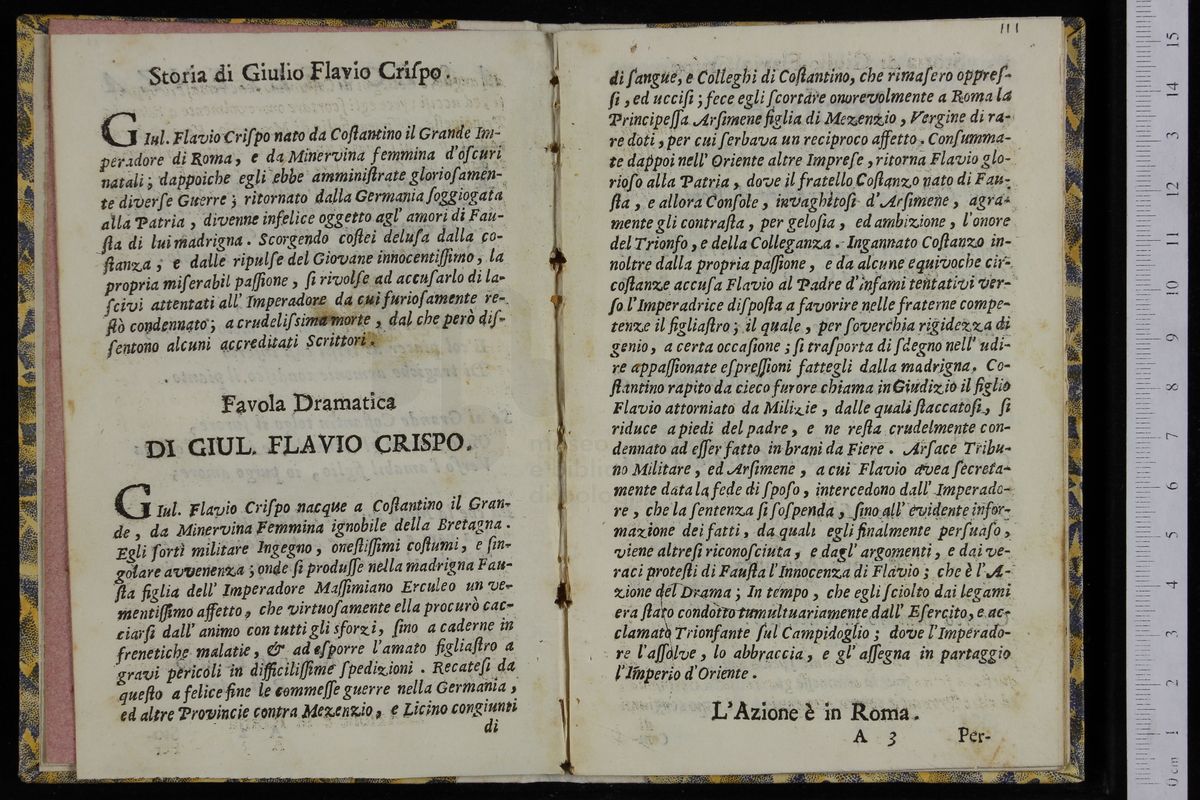 Storia di Giulio Flavio Criſpo.
GIul. Flavio Criſpo nato da Coſtantino il Grande Im-
peradore di Roma, e da Minervina femmina d'oſcuri
natali; dappoiche egli ebbe amminiſtrate glorioſamen-
te diverſe Guerre; ritornato dalla Germania ſoggiogata
alla Patria, divenne infelice oggetto agl' amori di Fau-
ſta di lui madrigna. Scorgendo coſtei deluſa dalla co-
ſtanza, e dalle ripulſe del Giovane innocentiſſimo, la
propria miſerabil paſſione, ſi rivolſe ad accuſarlo di la-
ſcivi attentati all' Imperadore da cui furioſamente re-
ſtò condennato; a crudeliſsima morte, dal che però diſ-
ſentono alcuni accreditati Scrittori.
Favola Dramatica
DI GIUL. FLAVIO CRISPO.
GIul. Flavio Criſpo nacque a Coſtantino il Gran-
de, da Minervina Femmina ignobile della Bretagna.
Egli ſortì militare Ingegno, oneſtiſſimi coſtumi, e ſin-
golare avvenenza; onde ſi produſſe nella madrigna Fau-
ſta figlia dell' Imperadore Maſſimiano Erculeo un ve-
mentiſſimo affetto, che virtuoſamente ella procurò cac-
ciarſi dall' animo con tutti gli sforzi, ſino a caderne in
frenetiche malatie, & ad eſporre l'amato figliaſtro a
gravi pericoli in difficiliſſime ſpedizioni. Recateſi da
queſto a felice fine le commeſſe guerre nella Germania,
ed altre Provincie contra Mezenzio, e Licino congiunti
di
111
di ſangue, e Colleghi di Coſtantino, che rimaſero oppreſ-
ſi, ed ucciſi; fece egli ſcortare onorevolmente a Roma la
Principeſſa Arſimene figlia di Mezenzio, Vergine di ra-
re doti, per cui ſerbava un reciproco affetto. Conſumma-
te dappoi nell' Oriente altre Impreſe, ritorna Flavio glo-
rioſo alla Patria, dove il fratello Coſtanzo nato di Fau-
ſta, e allora Conſole, invaghitoſi d'Arſimene, agra-
mente gli contraſta, per geloſia, ed ambizione, l'onore
del Trionfo, e della Colleganza. Ingannato Coſtanzo in-
noltre dalla propria paſſione, e da alcune equivoche cir-
coſtanze accuſa Flavio al Padre d'infami tentativi ver-
ſo l'Imperadrice diſpoſta a favorire nelle fraterne compe-
tenze il figliaſtro; il quale, per ſoverchia rigidezza di
genio, a certa occaſione; ſi traſporta di ſdegno nell' udi-
re appaſſionate eſpreſſioni fattegli dalla madrigna. Co-
ſtantino rapito da cieco furore chiama in Giudizio il figlio
Flavio attorniato da Milizie, dalle quali ſtaccatoſi, ſi
riduce a piedi del padre, e ne reſta crudelmente con-
dennato ad eſſer fatto in brani da Fiere. Arſace Tribu-
no Militare, ed Arſimene, a cui Flavio avea ſecreta-
mente data la fede di ſpoſo, intercedono dall' Imperado-
re, che la ſentenza ſi ſoſpenda, ſino all' evidente infor-
mazione dei fatti, da quali egli finalmente perſuaſo,
viene altreſi riconoſciuta, e dagl' argomenti, e dai ve-
raci proteſti di Fauſta l'Innocenza di Flavio; che è l'A-
zione del Drama; In tempo, che egli ſciolto dai legami
era ſtato condotto tumultuariamente dall' Eſercito, e ac-
clamato Trionfante ſul Campidoglio; dove l'Imperado-
re l'aſſolve, lo abbraccia, e gl' aſſegna in partaggio
l'Imperio d'Oriente.
L'Azione è in Roma.
A 3 Per-